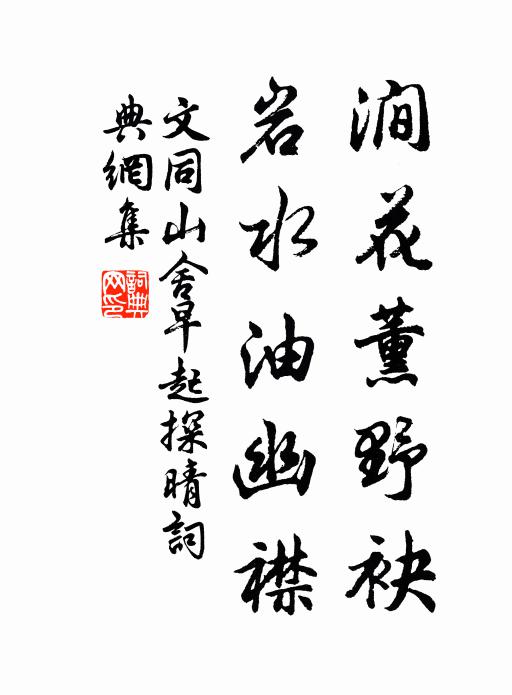 澗花薰野袂
岩水油幽襟
文同山舍早起探晴詞
典網集
詞典網印